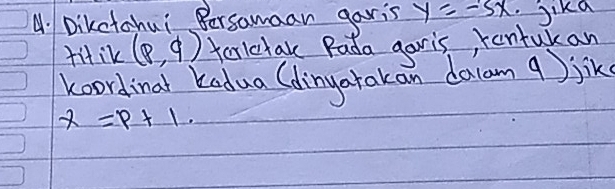 4. Diketahui Persamaan garis y = -5x. jika
titik (P, q) terletak Pada garis, tentukan
koordinat kedua (dinyatakan dalam q) jika
x = P + 1.